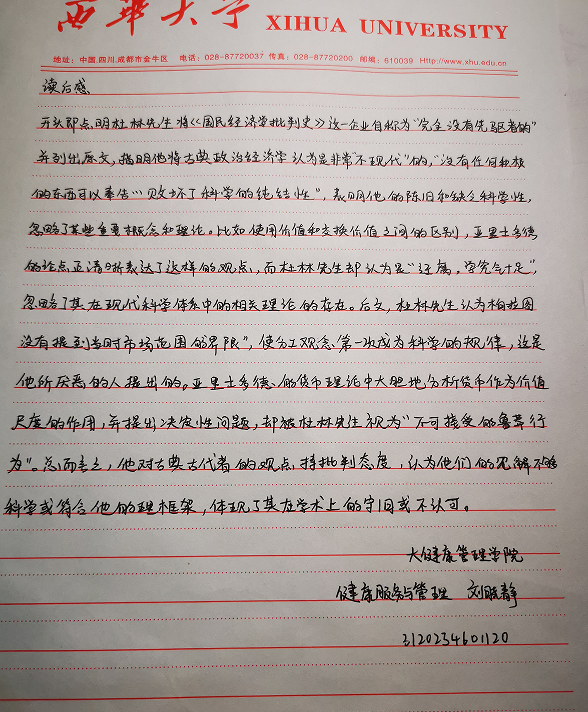 西华大学 XIHUA UNIVERSITY
地址：中国.四川.成都市金牛区 电话：028-87720037 传真：028-87720200 邮编：610039 Http://www.xhu.edu.cn
读后感
开头即点明杜林先生将《国民经济学批判史》这一企业自称为“完全没有先驱者的”
并列出原文，指明他将古典政治经济学认为是非常“不现代”的，“没有任何积极
的东西可以奉告…败坏了科学的纯结性”，表明他的陈旧和缺乏科学性，
忽略了某些重要概念和理论。比如使用价值和交换价值之间的区别，亚里士多德
的论点正清晰表达了这样的观点，而杜林先生却认为是“迂腐，学究气十足”，
忽略了其在现代科学体系中的相关理论的存在。后文，杜林先生认为柏拉图
没有提到当时市场范围的界限”，使分工观念第一次成为科学的规律，这是
他所厌恶的人提出的。亚里士多德的货币理论中大胆地分析货币作为价值
尺度的作用，并提出决定性问题，却被杜林先生视为“不可接受的鲁莽行
为”。总而言之，他对古典古代者的观点持批判态度，认为他们的见解不够
科学或符合他的理框架，体现了其在学术上的守旧或不认可。
大健康管理学院
健康服务与管理 刘 静
3120234601120